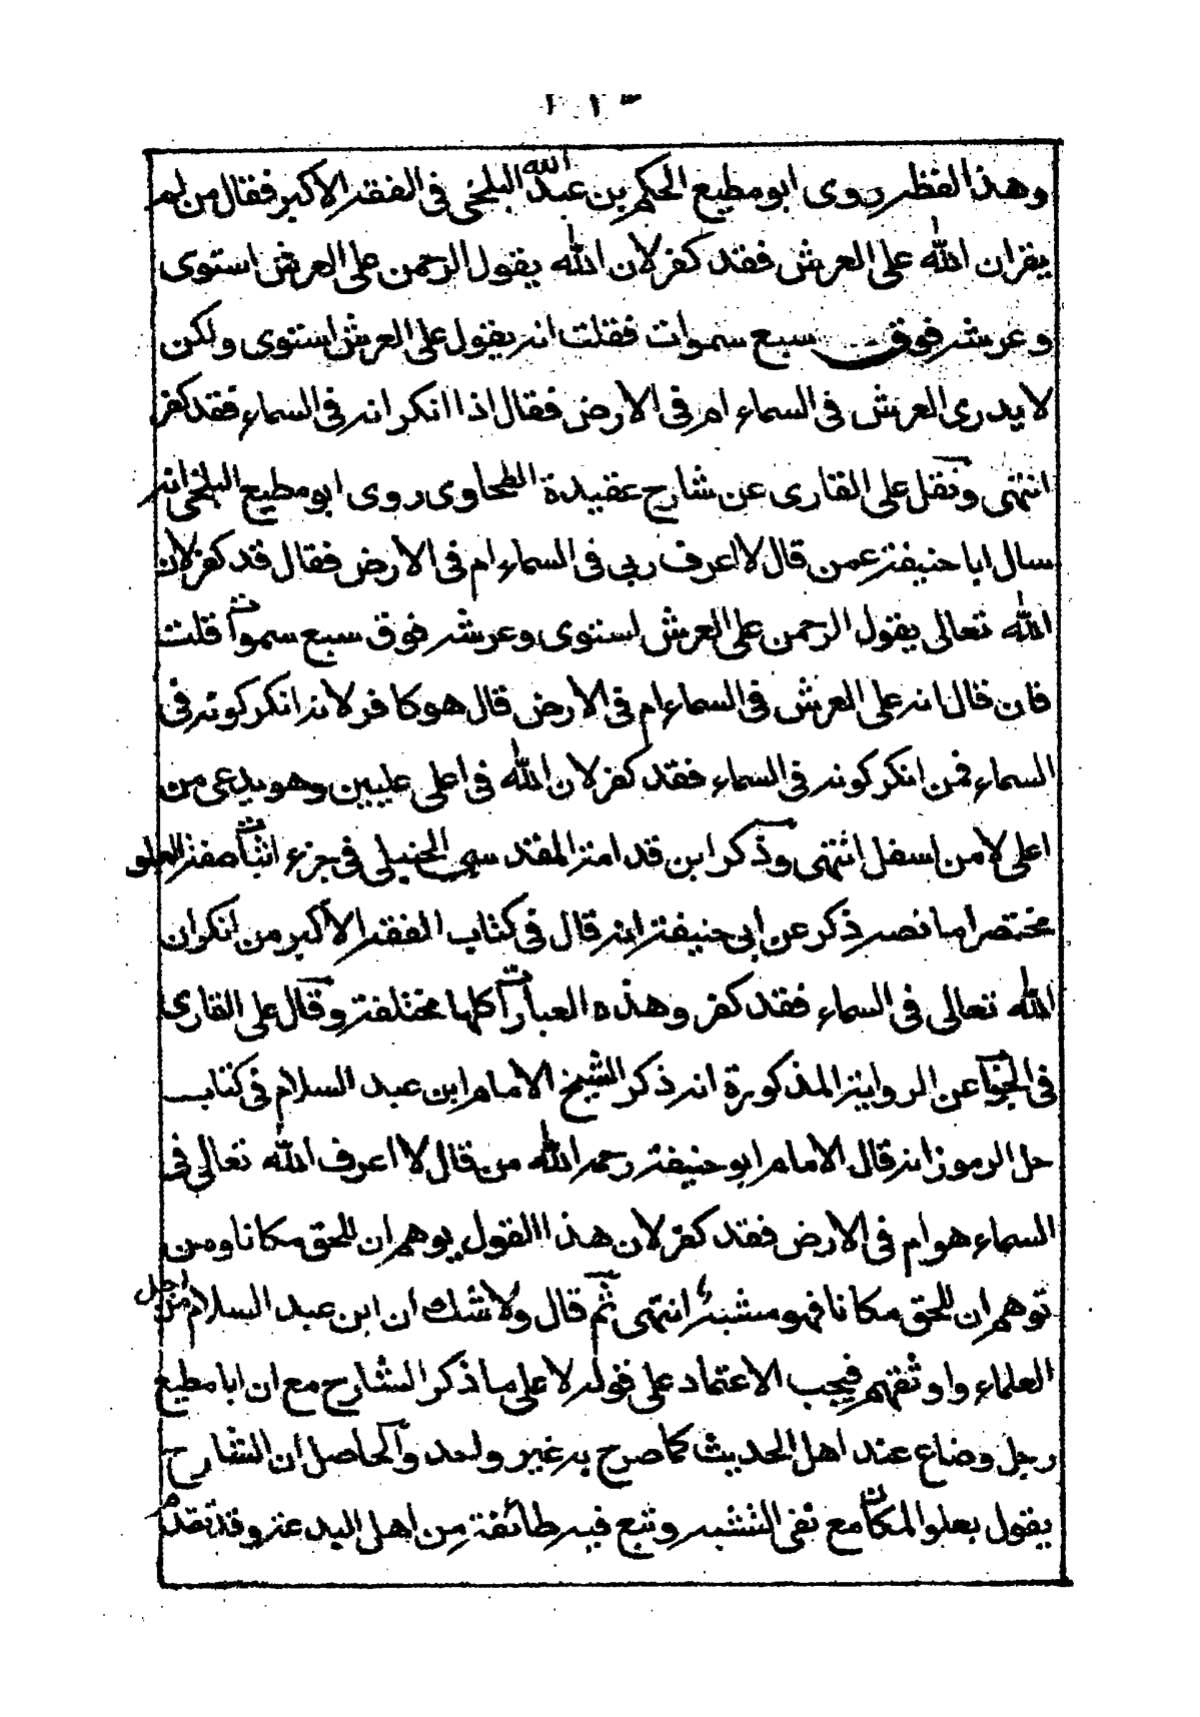 ٢١٣
وهذا لفظه روى ابو مطيع الحكم بن عبد الله البلخى فى الفقه الاكبر فقال من لم
يقر ان الله على العرش فقد كفر لان الله يقول الرحمن على العرش استوى
وعرشه فوق سبع سموات فقلت انه يقول على العرش استوى ولكن
لا يدرى العرش فى السماء ام فى الارض فقال اذا انكر انه فى السماء فقد كفر
انتهى ونقل على القارى عن شارح عقيدة الطحاوى روى ابو مطيع البلخى انه
سال ابا حنيفة عمن قال لا اعرف ربى فى السماء ام فى الارض فقال قد كفر لان
الله تعالى يقول الرحمن على العرش استوى وعرشه فوق سبع سموات قلت
فان قال انه على العرش فى السماء ام فى الارض قال هو كافر لانه انكر كونه فى
السماء فمن انكر كونه فى السماء فقد كفر لان الله فى اعلى عليين وهو يدعى من
اعلى لا من اسفل انتهى وذكر ابن قدامة المقدسى الحنبلى فى جزء اثبات صفة العلو
مختصرا ما نصه ذكر عن ابى حنيفة انه قال فى كتاب الفقه الاكبر من انكر ان
الله تعالى فى السماء فقد كفر وهذه العبارات كلها مختلفة وقال على القارى
فى الجواب عن الرواية المذكورة انه ذكر الشيخ الامام ابن عبد السلام فى كتاب
حل الرموز انه قال الامام ابو حنيفة رحمه الله من قال لا اعرف الله تعالى فى
السماء هو ام فى الارض فقد كفر لان هذا القول يوهم ان للحق مكانا ومن
توهم ان للحق مكانا فهو مشبه انتهى ثم قال ولا شك ان ابن عبد السلام من اجل
العلماء واوثقهم فيجب الاعتماد على قوله لا على ما ذكر الشارح مع ان ابا مطيع
رجل وضاع عند اهل الحديث كما صرح به غير واحد والحاصل ان الشارح
يقول بعلو المكان مع نفى التشبيه وتبع فيه طائفة من اهل البدعة وقد تقدم